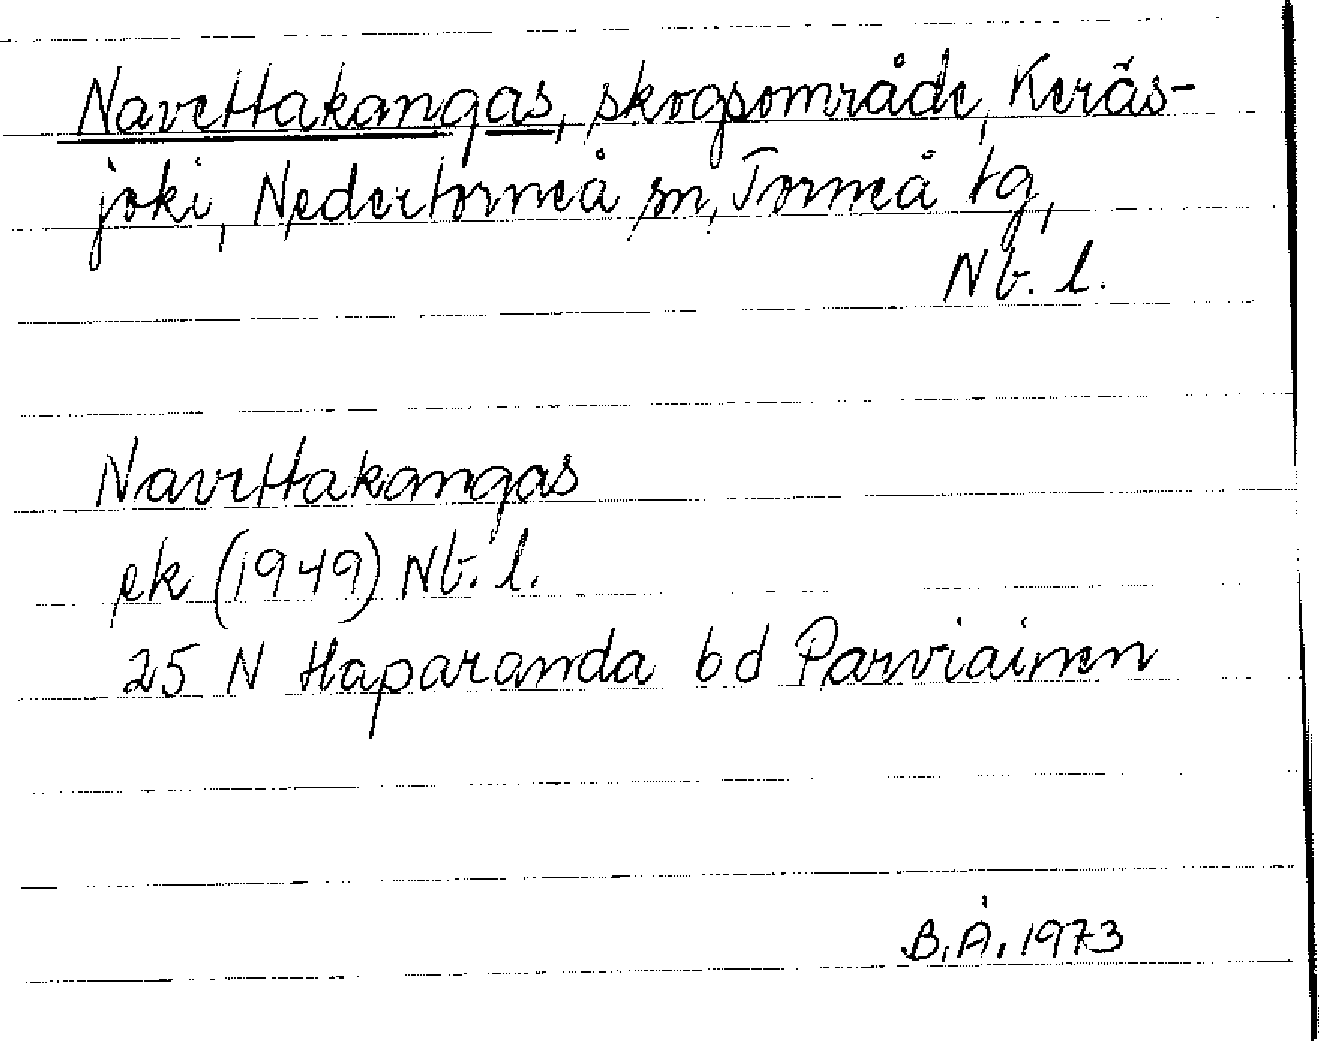 Navettakangas, skogsområde, Keräs-
joki, Nedertorneå sn, Torneå tg,
Nb. l.
Navettakangas
ek (1949) Nb. l.
25 N Haparanda bd Parviainen
B. Å. 1973